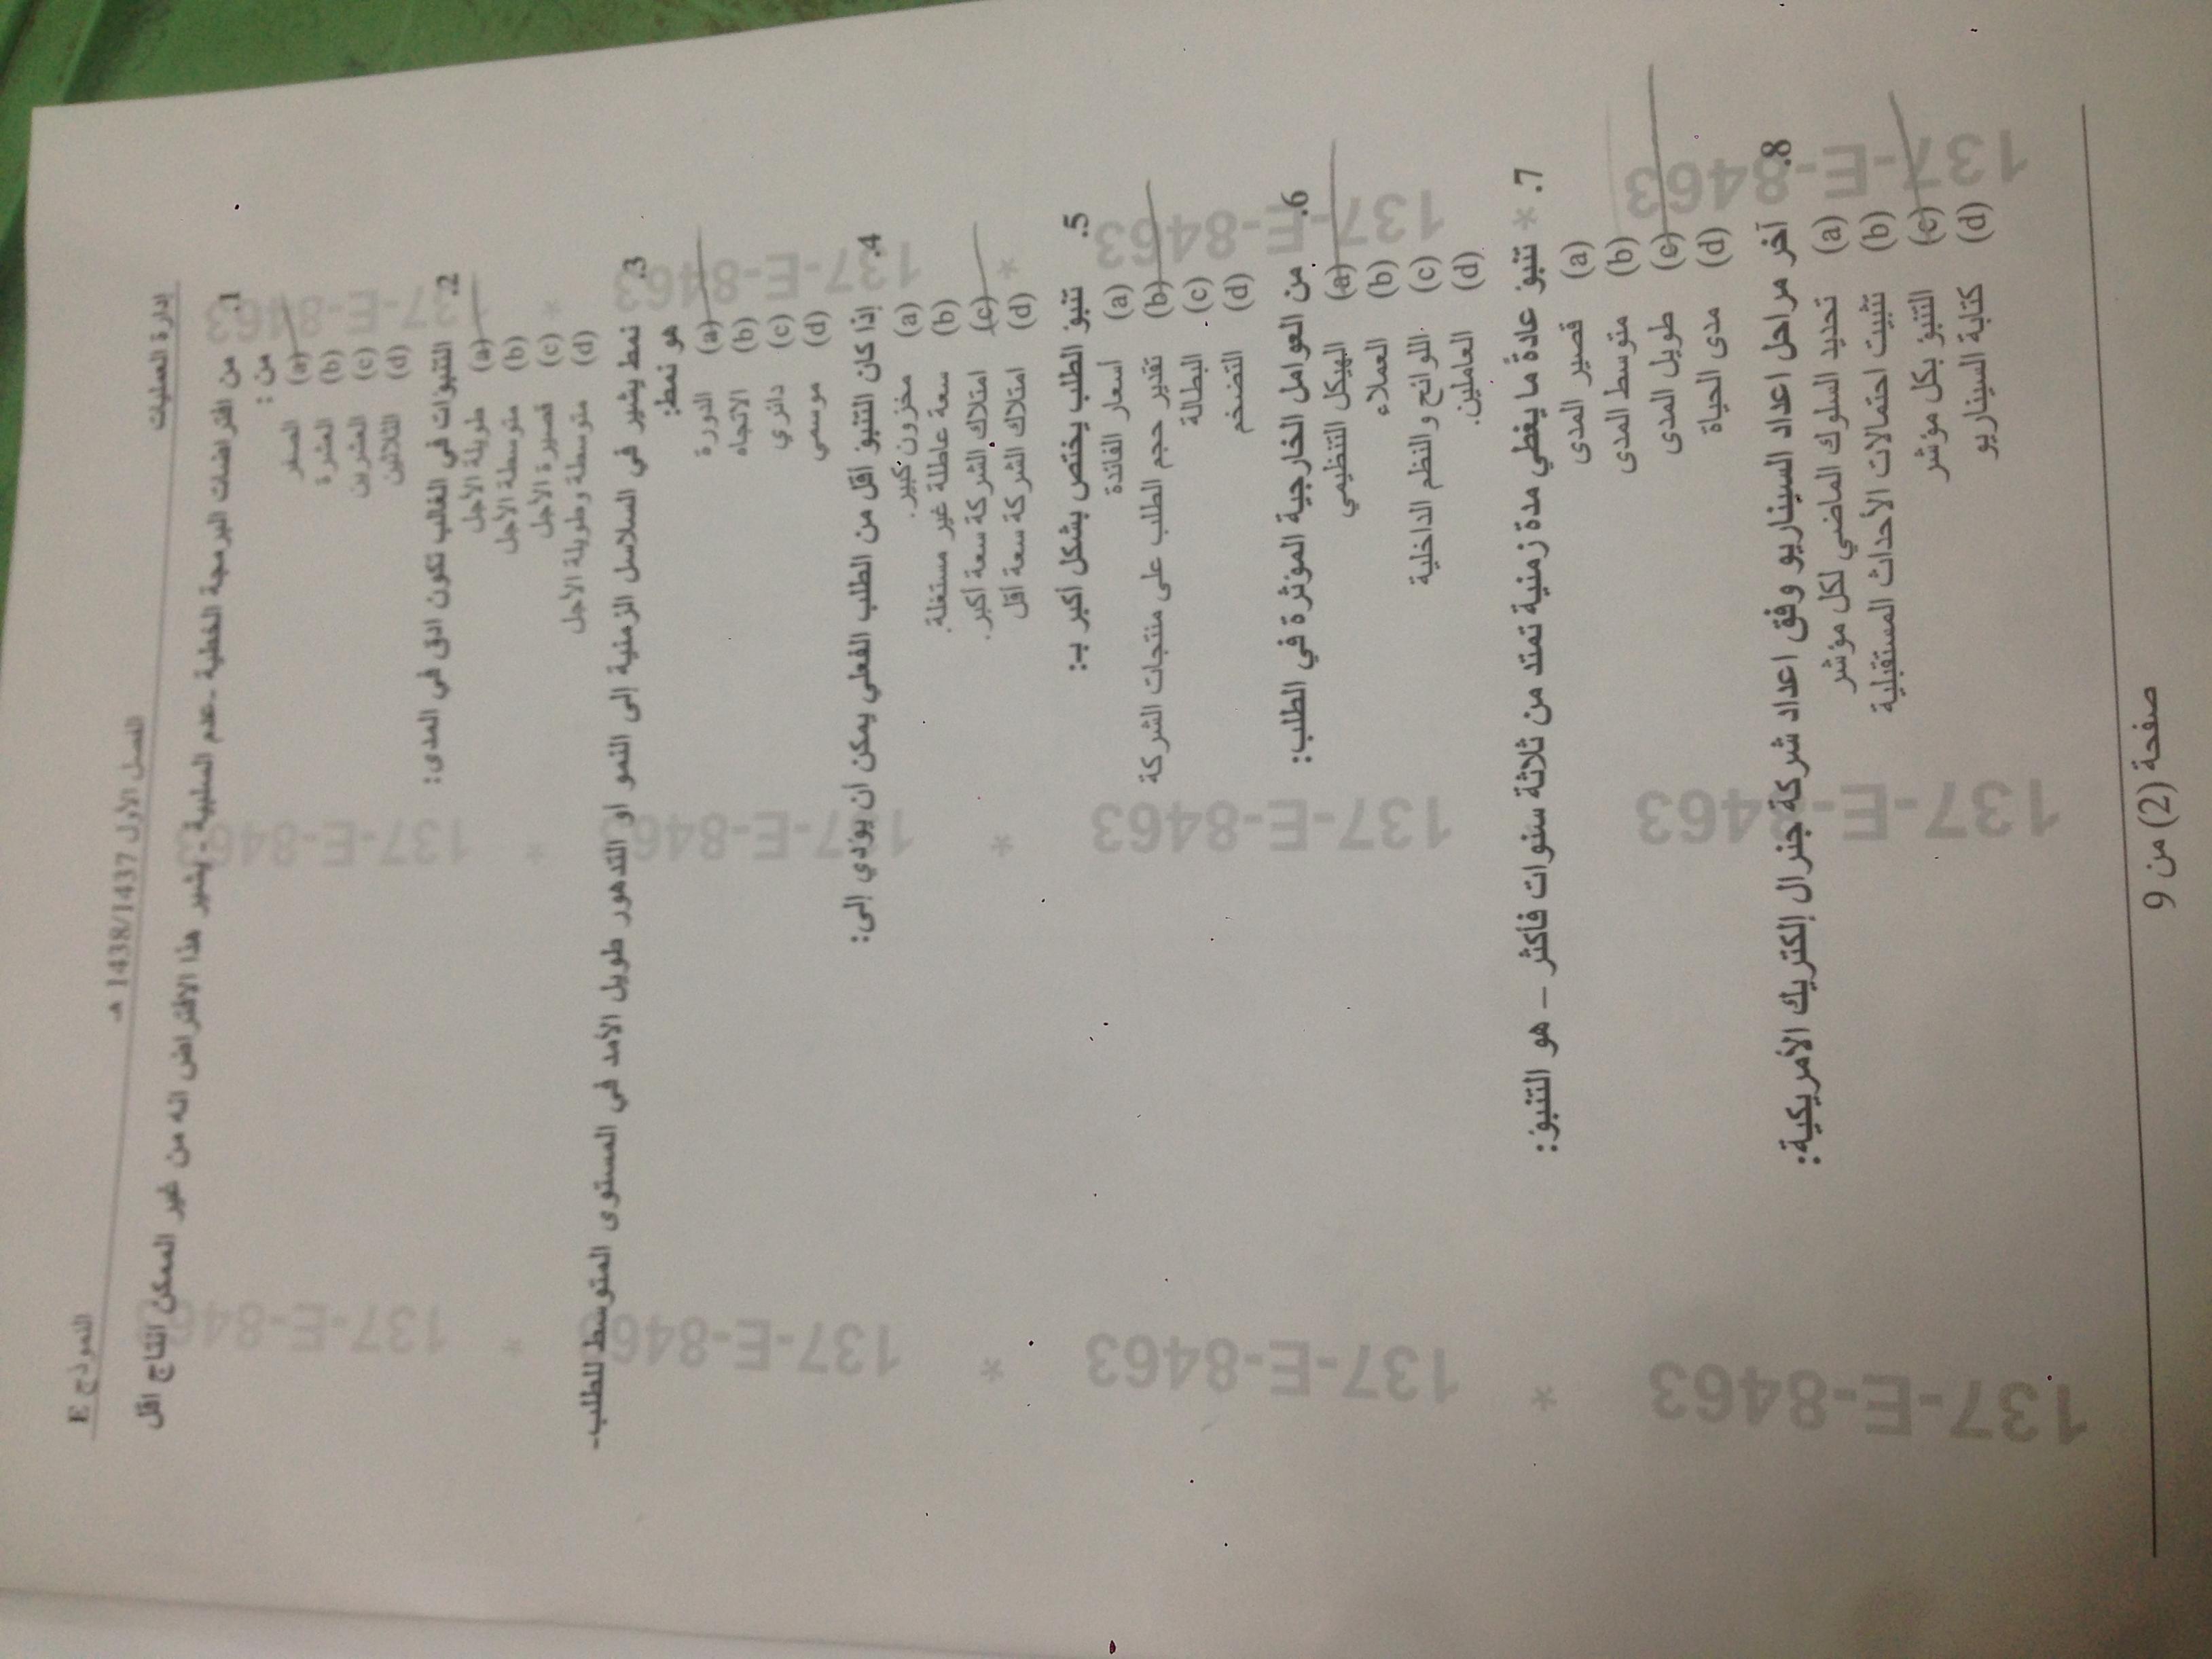 إدارة العمليات
الفصل الأول 1438/1437 هـ
النموذج E
1. من افتراضات البرمجة الخطية -عدم السلبية - يشير هذا الافتراض انه من غير الممكن انتاج اقل
من :
(a) الصفر
(b) العشرة
(c) العشرين
(d) الثلاثين
2. التنبوات في الغالب تكون ادق في المدى:
(a) طويلة الأجل
(b) متوسطة الأجل
(c) قصيرة الأجل
(d) متوسطة وطويلة الأجل
3. نمط يشير في السلاسل الزمنية إلى النمو او التدهور طويل الأمد في المستوى المتوسط للطلب-
هو نمط:
(a) الدورة
(b) الاتجاه
(c) دائري
(d) موسمي
4. إذا كان التنبؤ اقل من الطلب الفعلي يمكن ان يؤدي إلى:
(a) مخزون كبير.
(b) سعة عاطلة غير مستغلة.
(c) امتلاك الشركة سعة أكبر.
(d) امتلاك الشركة سعة أقل
5. تنبؤ الطلب يختص بشكل أكبر بـ:
(a) أسعار الفائدة
(b) تقدير حجم الطلب على منتجات الشركة
(c) البطالة
(d) التضخم
6. من العوامل الخارجية المؤثرة في الطلب:
(a) الهيكل التنظيمي
(b) العملاء
(c) اللوائح والنظم الداخلية
(d) العاملين.
7. تنبؤ عادةً ما يغطي مدة زمنية تمتد من ثلاثة سنوات فأكثر – هو التنبؤ:
(a) قصير المدى
(b) متوسط المدى
(c) طويل المدى
(d) مدى الحياة
8. آخر مراحل اعداد السيناريو وفق اعداد شركة جنرال إلكتريك الأمريكية:
(a) تحديد السلوك الماضي لكل مؤشر
(b) تثبيت احتمالات الأحداث المستقبلية
(c) التنبؤ بكل مؤشر
(d) كتابة السيناريو
صفحة (2) من 9
137-E-8463 * 137-E-8463 * 137-E-8463 * 137-E-8463
137-E-8463 * 137-E-8463 * 137-E-8463 * 137-E-8463
137-E-8463 * 137-E-8463 * 137-E-8463 * 137-E-8463